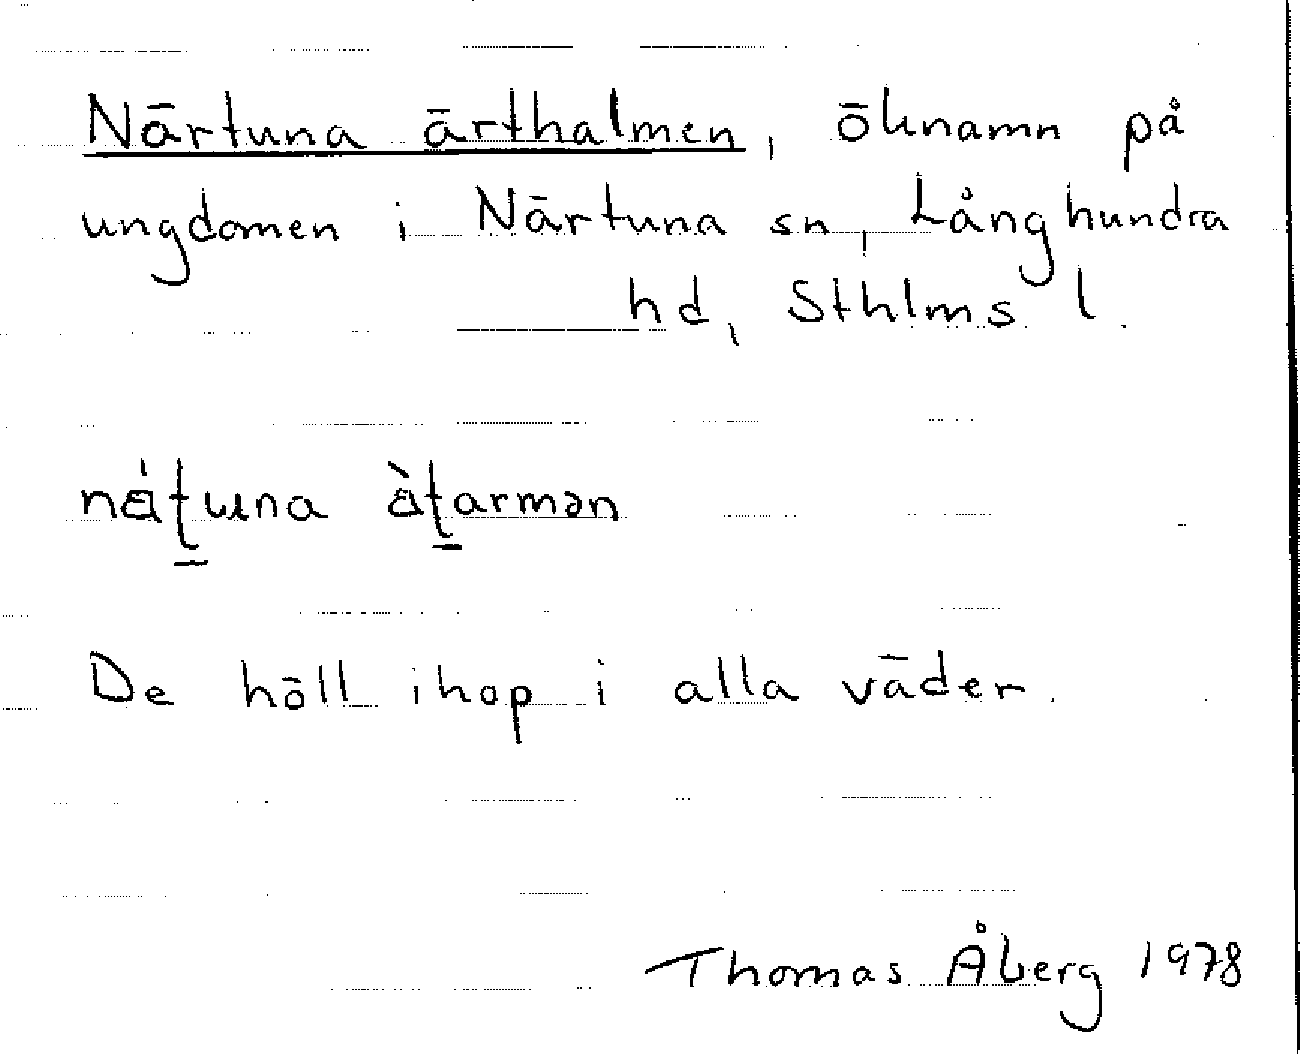 Närtuna ärthalmen, öknamn på
ungdomen i Närtuna sn, Långhundra
hd, Sthlms l.
De höll ihop i alla väder.
Thomas Åberg 1978